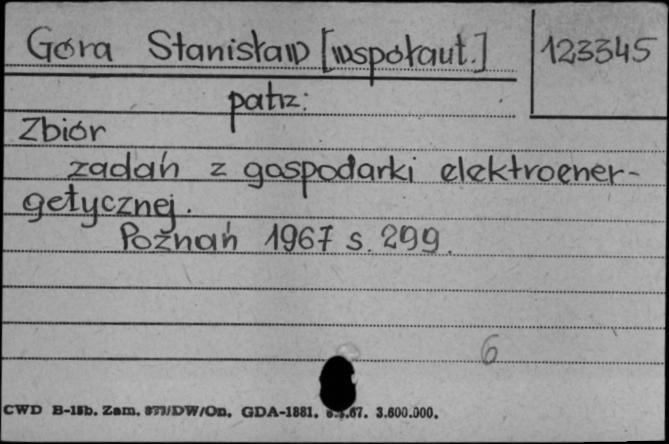 Góra Stanisław [współaut.] 123345
patrz:
Zbiór
zadań z gospodarki elektroener-
getycznej.
Poznań 1967 s. 299.
6
CWD B-15b. Zam. 877/DW/On. GDA-1881. .67. 3.600.000.